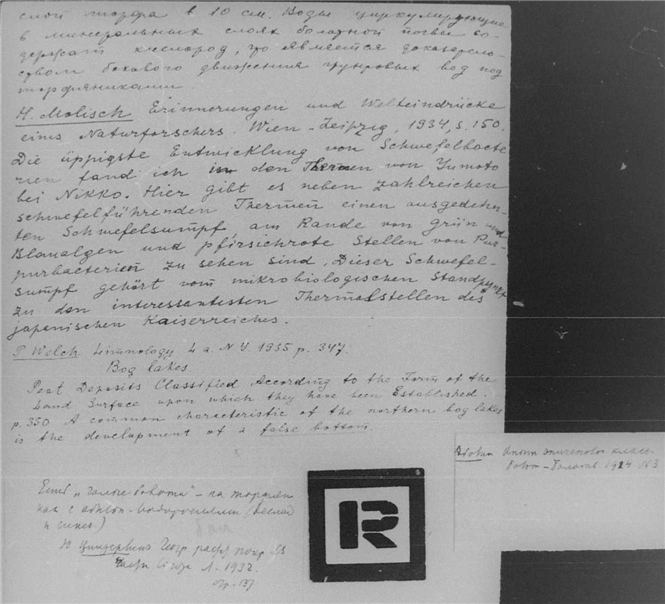 сной торфа в 10 см. Воды циркулирующие
в минеральных слоях болотной почвы со-
держат кислород, что является доказатель-
ством бокового движения грунтовых вод под
торфяниками.
H. Molisch Erinnerungen und Welteindrücke
eines Naturforschers. Wien-Leipzig, 1934, s. 150.
Die üppigste Entwicklung von Schwefelbacte
rien fand ich in den Thermen von Yumoto
bei Nikko. Hier gibt es neben zahlreichen
schwefelführenden Thermen einen ausgedehn-
ten Schwefelsumpf, am Rande von grün und
Blaualgen und pfirsichrote Stellen von Pur-
purbacterien zu sehen sind. Dieser Schwefel-
sumpf gehört vom mikrobiologischen Standpunkt
zu den interessantesten Thermalstellen des
japanischen Kaiserreiches.
P. Welch Limnology N.Y. 1935 p. 347.
Bog lakes.
Peat Deposits Classified According to the Form of the
Land Surface upon which they have been Established.
p. 350 A common characteristic of the northern bog lakes
is the development of a false bottom.
1924 №3
Есть на
с
и
Геогр.
Л. 1932.
R